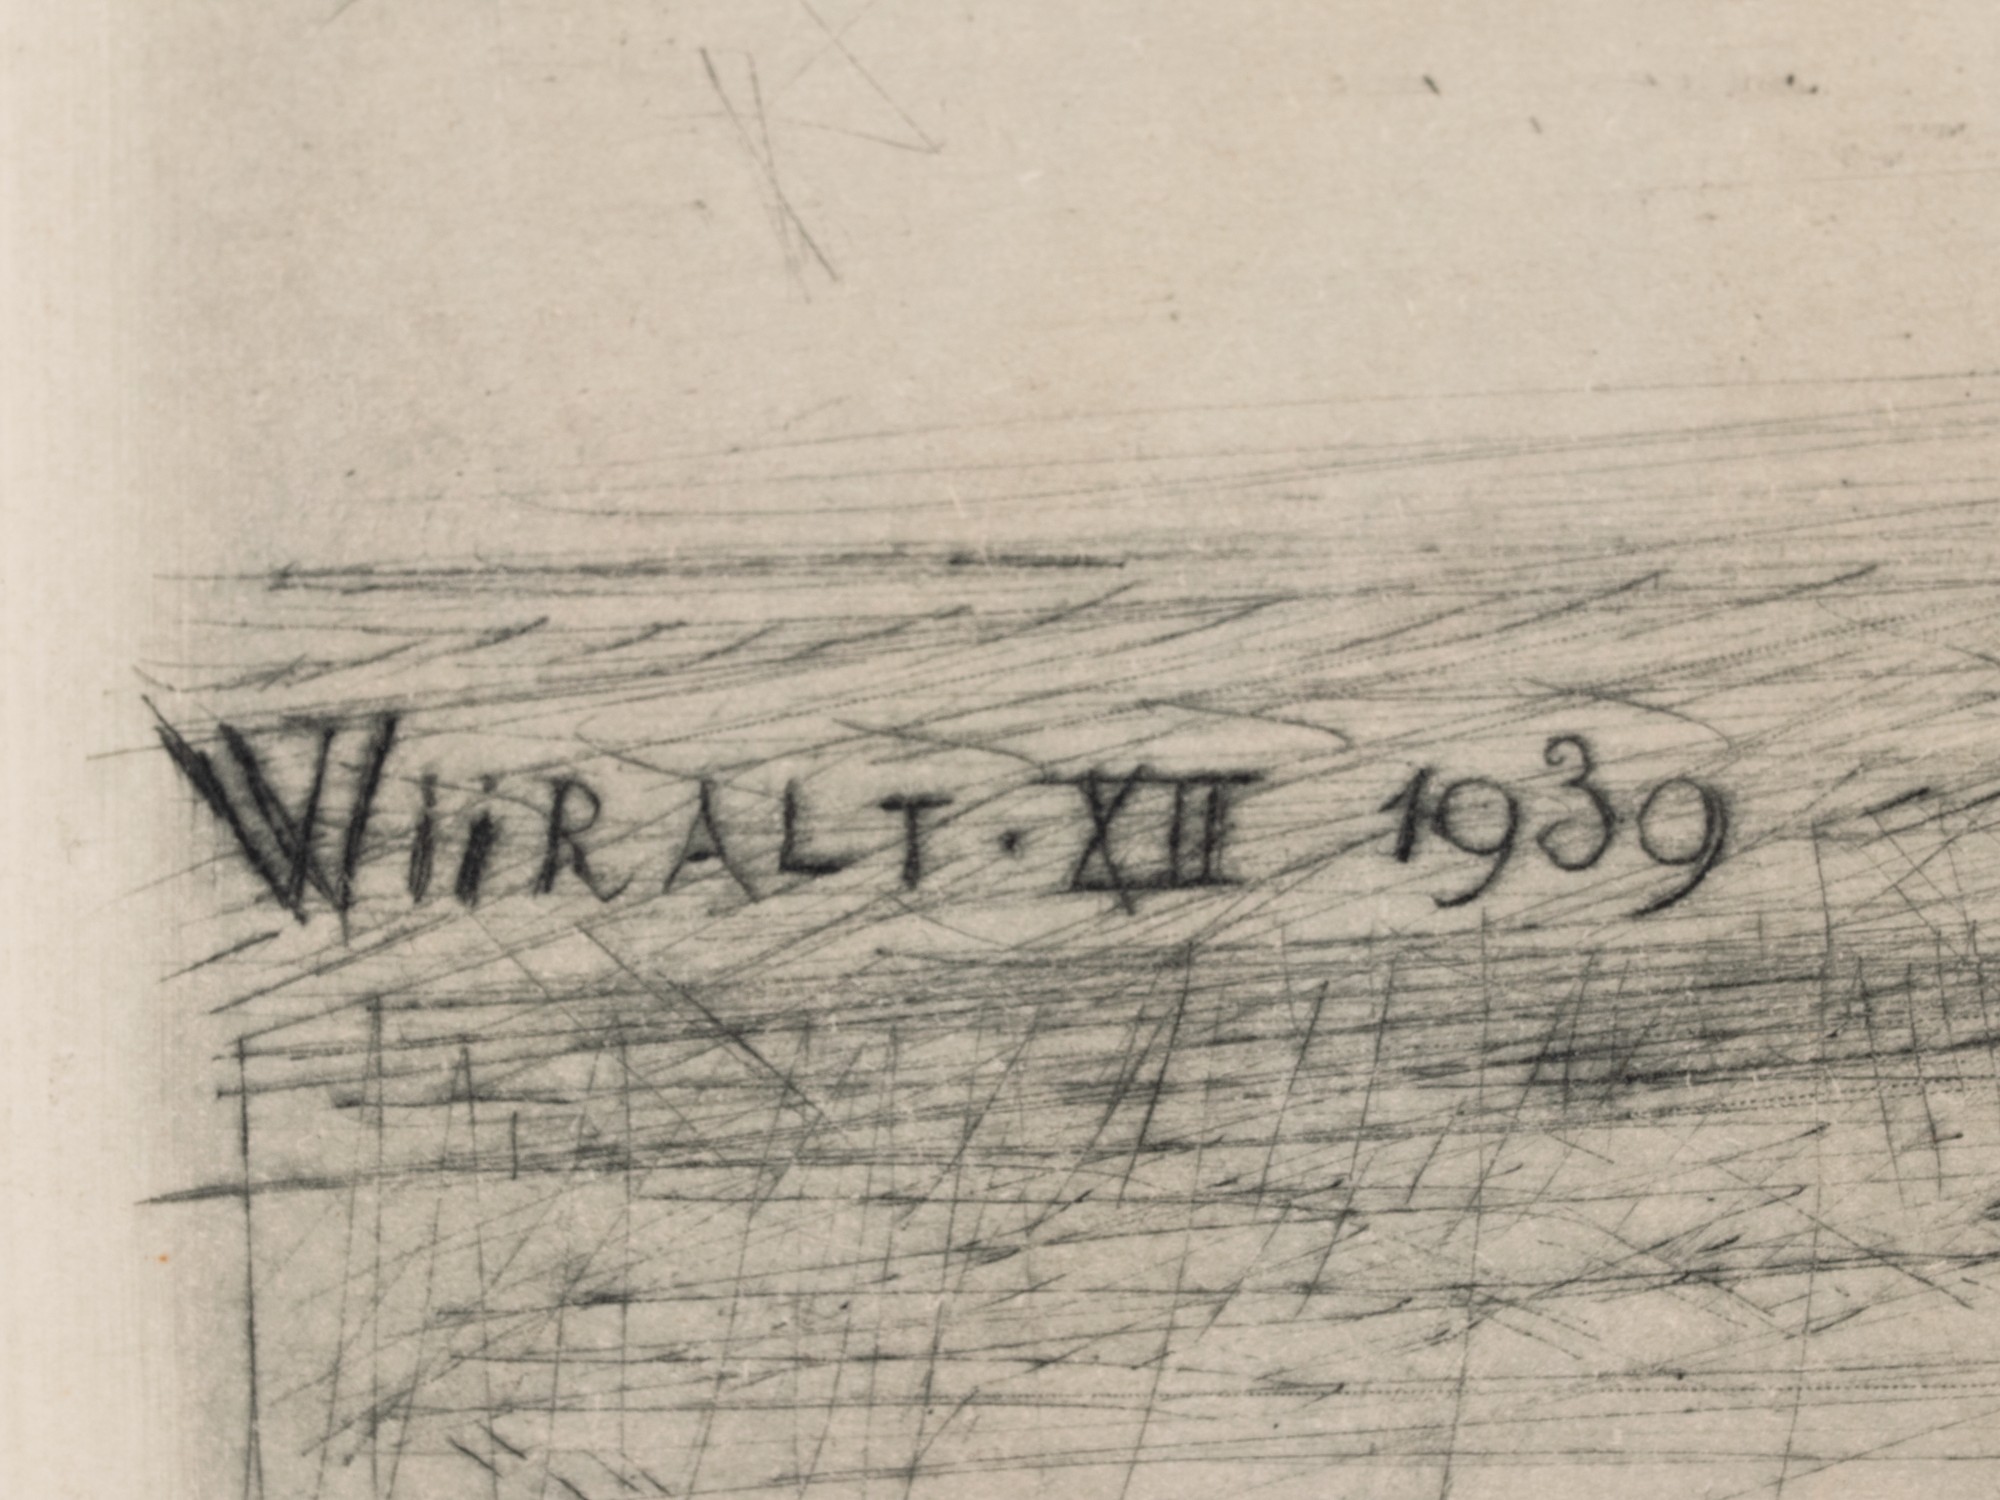 WiiRALT · XII 1939